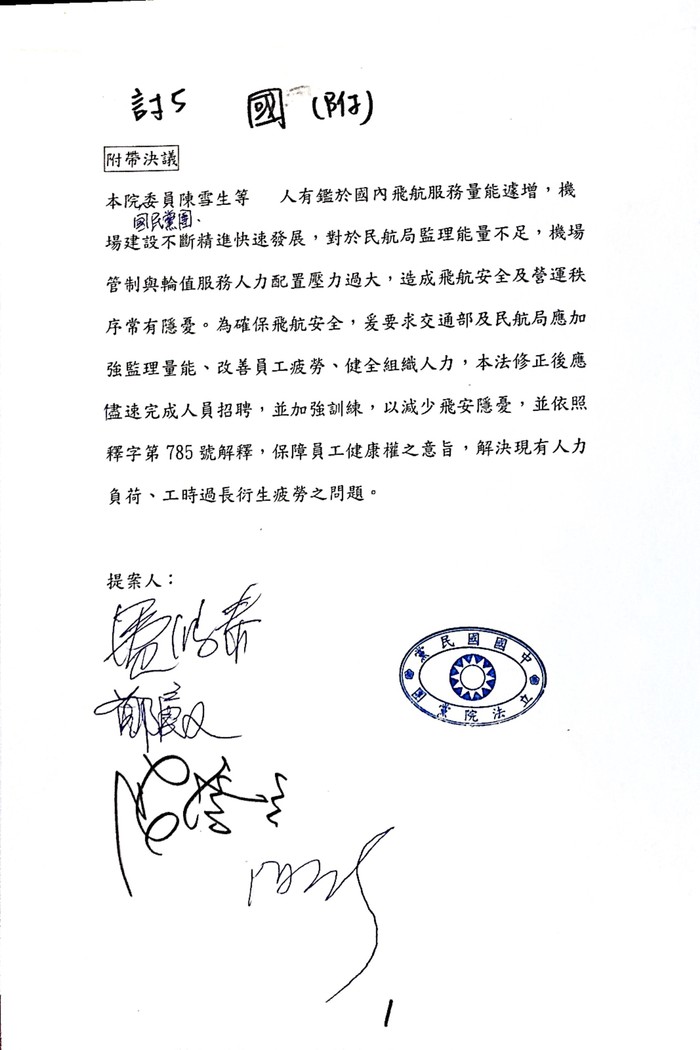 討5 國(附)
附帶決議
本院委員陳雪生等 人有鑑於國內飛航服務量能遽增，機
國民黨團、
場建設不斷精進快速發展，對於民航局監理能量不足，機場
管制與輪值服務人力配置壓力過大，造成飛航安全及營運秩
序常有隱憂。為確保飛航安全，爰要求交通部及民航局應加
強監理量能、改善員工疲勞、健全組織人力，本法修正後應
儘速完成人員招聘，並加強訓練，以減少飛安隱憂，並依照
釋字第 785 號解釋，保障員工健康權之意旨，解決現有人力
負荷、工時過長衍生疲勞之問題。
提案人：
中國國民黨
立法院黨團
1